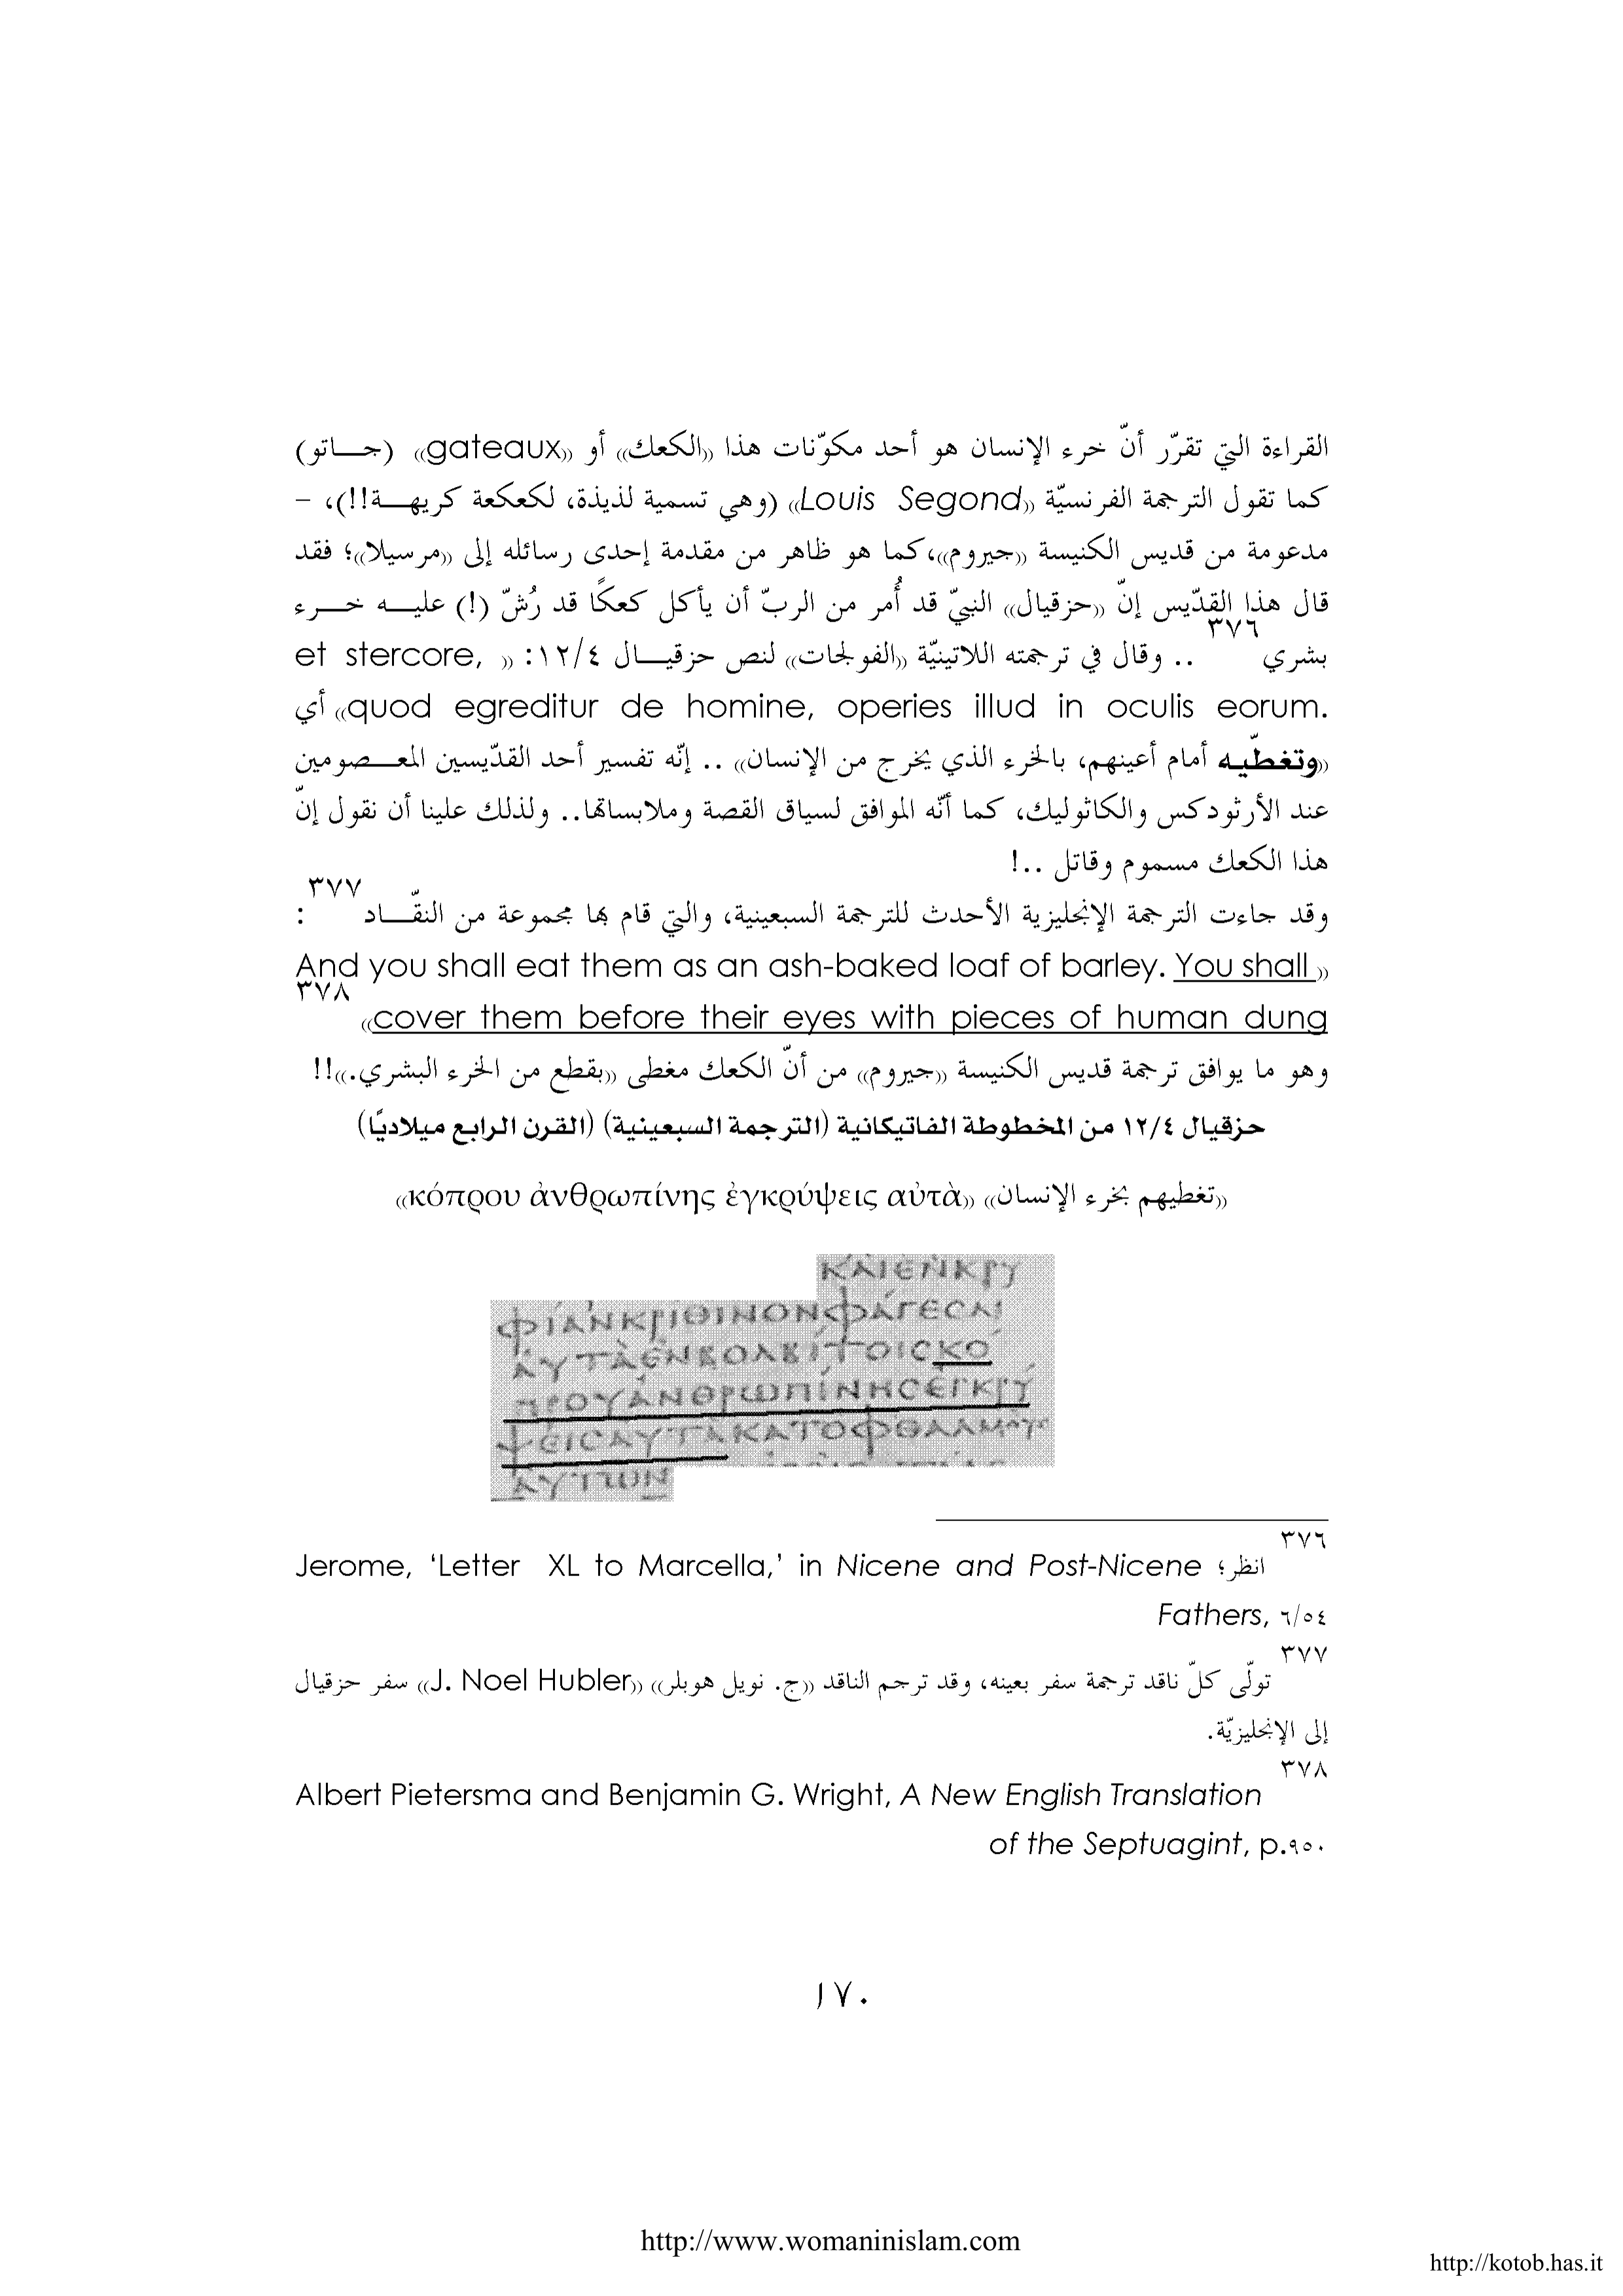 القراءة التي تقرّر أنّ خرء الإنسان هو أحد مكوّنات هذا «الكعك» أو «gateaux» (جـــاتو)
كما تقول الترجمة الفرنسيّة «Louis Segond» (وهي تسمية لذيذة، لكعكعة كريهـــة!!)، –
مدعومة من قديس الكنيسة «جيروم»،كما هو ظاهر من مقدمة إحدى رسائله إلى «مرسيلا»؛ فقد
قال هذا القدّيس إنّ «حزقيال» النبيّ قد أُمر من الربّ أن يأكل كعكًا قد رُشّ (!) عليـــه خـــرء
بشري٣٧٦ .. وقال في ترجمته اللاتينيّة «الفولجات» لنص حزقيـــال ١٢/٤: « et stercore,
quod egreditur de homine, operies illud in oculis eorum.» أي
«وتغطّيـه أمام أعينهم، بالخرء الذي يخرج من الإنسان» .. إنّه تفسير أحد القدّيسين المعـــصومين
عند الأرثودكس والكاثوليك، كما أنّه الموافق لسياق القصة وملابساتها.. ولذلك علينا أن نقول إنّ
هذا الكعك مسموم وقاتل ..!
وقد جاءت الترجمة الإنجليزية الأحدث للترجمة السبعينية، والتي قام بها مجموعة من النقّـــاد٣٧٧:
«And you shall eat them as an ash-baked loaf of barley. You shall
cover them before their eyes with pieces of human dung»٣٧٨
وهو ما يوافق ترجمة قديس الكنيسة «جيروم» من أنّ الكعك مغطى «بقطع من الخرء البشري.»!!
حزقيال ١٢/٤ من المخطوطة الفاتيكانية (الترجمة السبعينية) (القرن الرابع ميلاديًا)
«تغطيهم بخرء الإنسان» «κόπρου ἀνθρωπίνης ἐγκρύψεις αὐτὰ»
ΚΑΙΕΝΚΡΥ
ΦΙΑΝΚΡΙΘΙΝΟΝΦΑΓΕΣΑΙ
ΑΥΤΑΕΝΒΟΛΒΙΤΟΙΣΚΟ
ΠΡΟΥΑΝΘΡΩΠΙΝΗΣΕΓΚΡΥ
ΨΕΙΣΑΥΤΑΚΑΤΟΦΘΑΛΜΟΥΣ
ΑΥΤΩΝ
٣٧٦ انظر؛ Jerome, ‘Letter XL to Marcella,’ in Nicene and Post-Nicene
Fathers, ٦/٥٤
٣٧٧ تولّى كلّ ناقد ترجمة سفر بعينه، وقد ترجم الناقد «ج. نويل هوبلر» «J. Noel Hubler» سفر حزقيال
إلى الإنجليزيّة.
٣٧٨ Albert Pietersma and Benjamin G. Wright, A New English Translation
of the Septuagint, p.٩٥٠
١٧٠
http://www.womaninislam.com
http://kotob.has.it